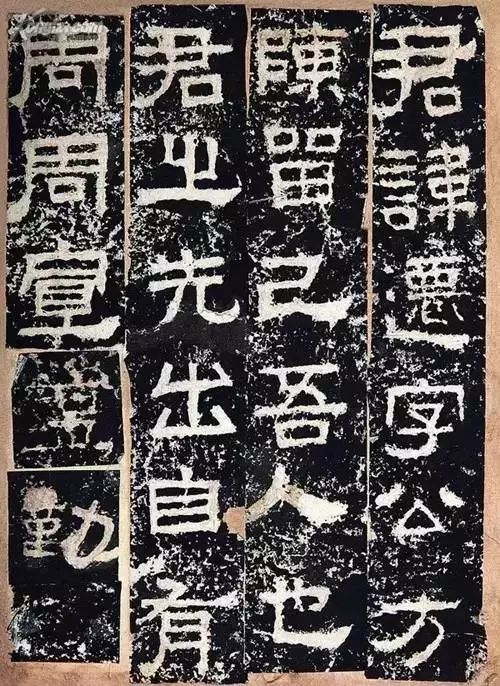 君諱遷字公方
陳留己吾人也
君之先出自有
周周宣勤